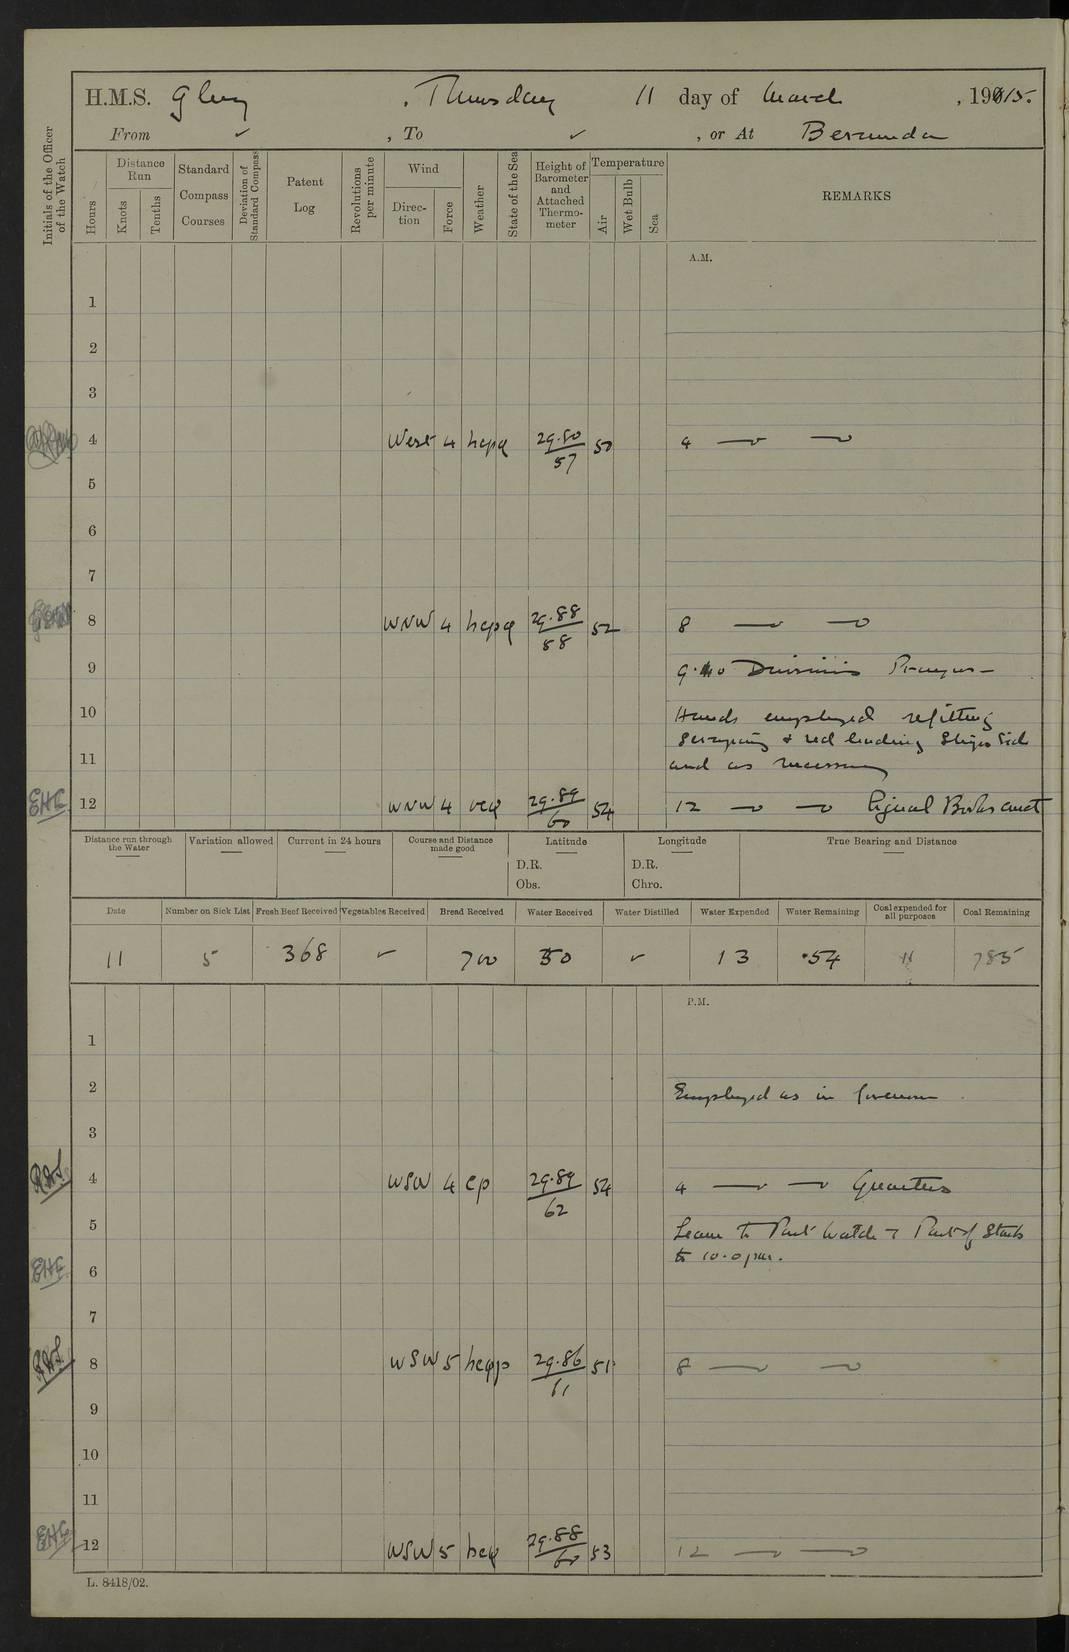 H.M.S. Glory , Thursday 11 day of March , 1915.
From ✓ , To ✓ , or At Bermuda
Initials of the Officer of the Watch
Hours
Distance Run
Knots
Tenths
Standard Compass Courses
Deviation of Standard Compass
Patent Log
Revolutions per minute
Wind
Direction
Force
Weather
State of the Sea
Height of Barometer and Attached Thermometer
Temperature
Air
Wet Bulb
Sea
REMARKS
A.M.
1
2
3
4 West 4 bcpq 29.80/57 50 4
5
6
7
8 WNW 4 bcpq 29.88/58 52 8
9 9.40 Divisions Prayers
10 Hands employed refitting
scraping & red leading Ships Side
11 and as necessary
EHC 12 WNW 4 ocq 29.89/60 54 12 Signal Books correct
Distance run through the Water
Variation allowed
Current in 24 hours
Course and Distance made good
Latitude
D.R.
Obs.
Longitude
D.R.
Chro.
True Bearing and Distance
Date Number on Sick List Fresh Beef Received Vegetables Received Bread Received Water Received Water Distilled Water Expended Water Remaining Coal expended for all purposes Coal Remaining
11 5 368 ✓ 700 50 ✓ 13 54 11 785
P.M.
1
2 Employed as in forenoon
3
4 WSW 4 cp 29.89/62 54 4 Quarters
5 Leave to Part Watch & Part of Stoks
to 10.0 pm.
EHC 6
7
8 WSW 5 bcqp 29.86/61 51 8
9
10
11
EHC 12 WSW 5 bcq 29.88/60 53 12
L. 8418/02.